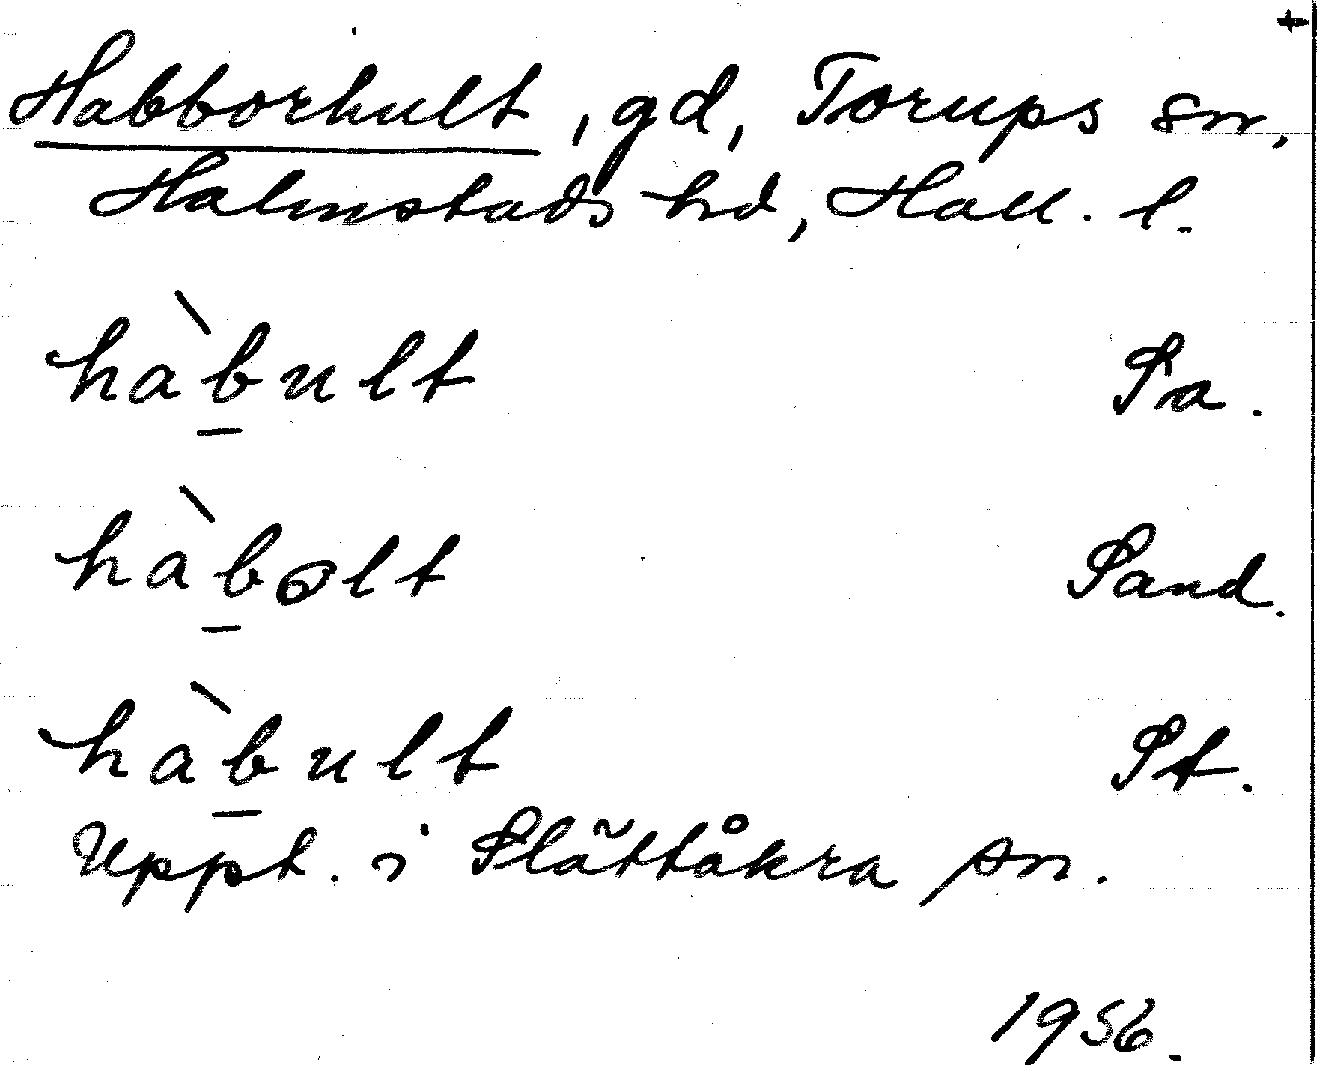 Habborhult, gd, Torups sn,
Halmstads hd, Hall. l.
hàb̲ult Sa.
hàb̲ɷlt Sand.
hàb̲ult St.
Uppt. i Slättåkra sn.
1956.